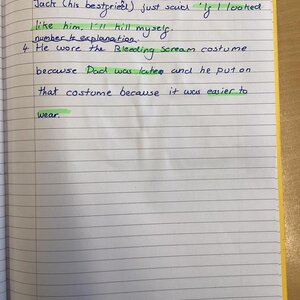 Jack (his bestfriend) just said "If I looked
like him, I'll kill myself.
number to explanation.
4. He wore the Bleeding Scream costume
because Dad was late and he put on
that costume because it was easier to
wear.